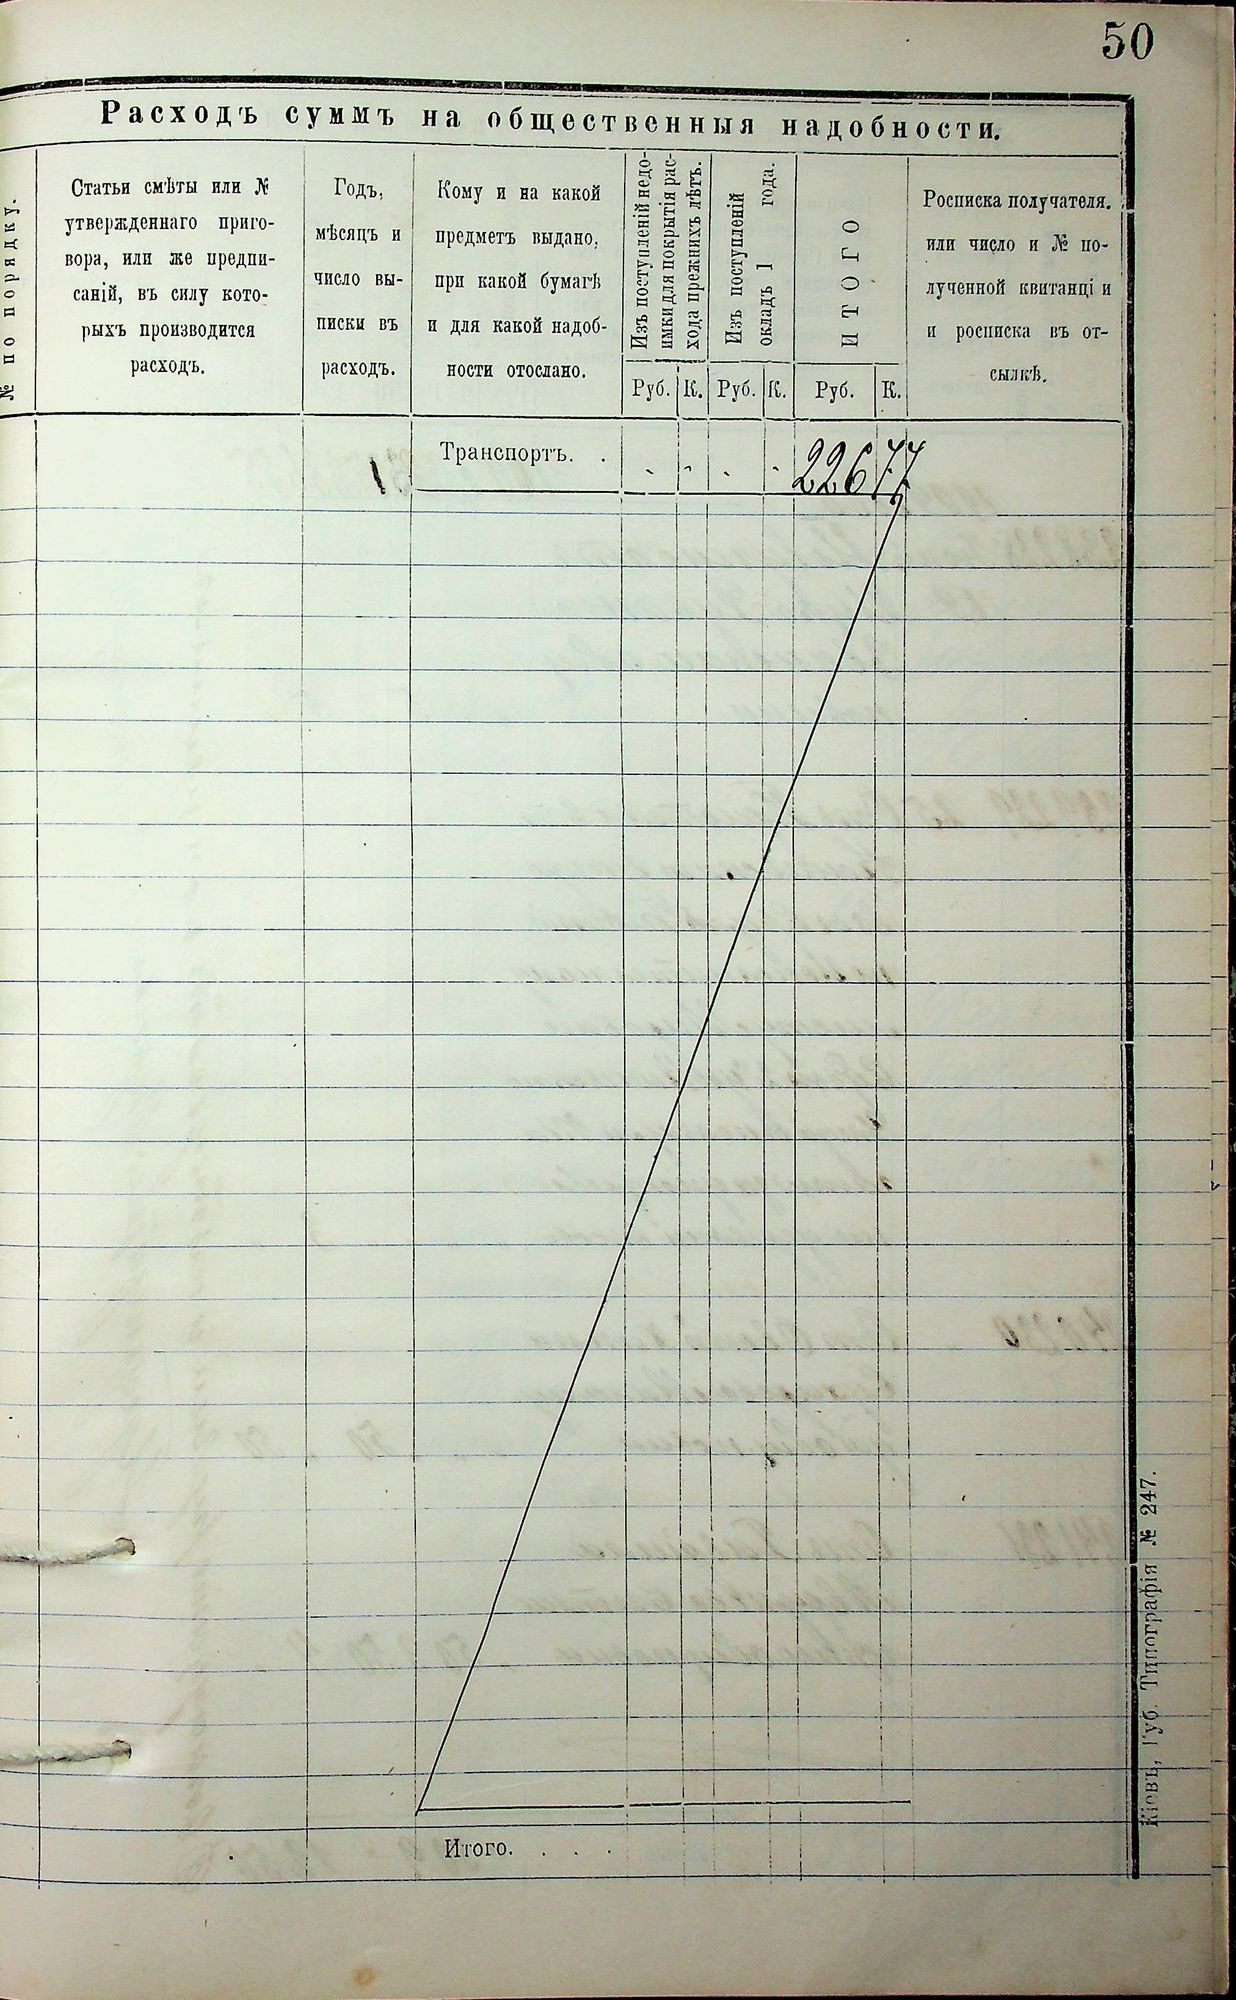 50
Расходъ суммъ на общественныя надобности.
№ по порядку.
Статьи смѣты или №
утвержденнаго приго-
вора, или же предпи-
саній, въ силу кото-
рыхъ производится
расходъ.
Годъ,
мѣсяцъ и
число вы-
писки въ
расходъ.
Кому и на какой
предметъ выдано,
при какой бумагѣ
и для какой надоб-
ности отослано.
Изъ поступленій недо-
имки для покрытія рас-
хода прежнихъ лѣтъ.
Изъ поступленій
окладъ 1 года.
ИТОГО
Росписка получателя.
или число и № по-
лученной квитанці и
и росписка въ от-
сылкѣ.
Руб. К. Руб. К. Руб. К.
Транспортъ. . 226 77
Итого. . . . .
Кіевъ, Губ. Типографія № 247.